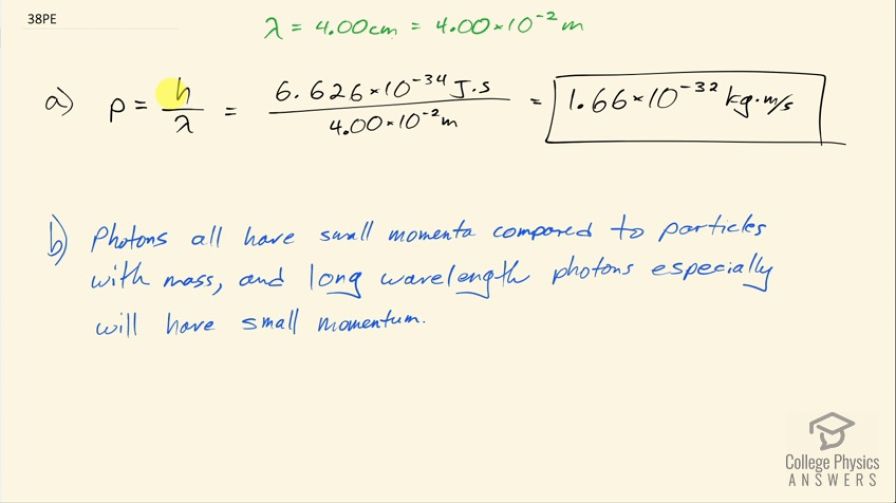 38PE
λ = 4.00cm = 4.00×10⁻² m
a) p = h/λ = 6.626×10⁻³⁴ J·s / 4.00×10⁻² m = 1.66×10⁻³² kg·m/s
b) Photons all have small momenta compared to particles
with mass, and long wavelength photons especially
will have small momentum.
College Physics
ANSWERS